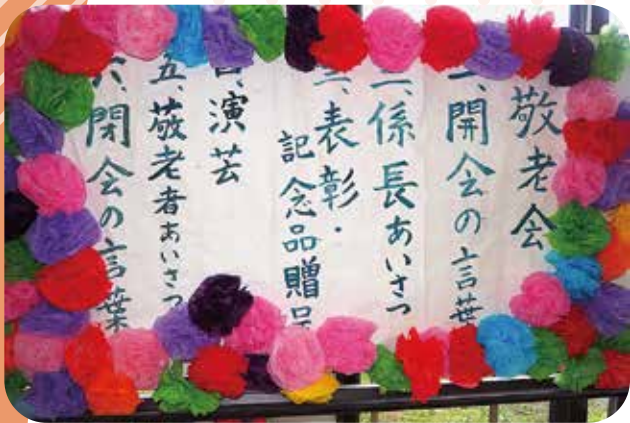 敬老会
一、開会の言葉
二、係長あいさつ
三、表彰・
記念品贈呈
四、演芸
五、敬老者あいさつ
六、閉会の言葉